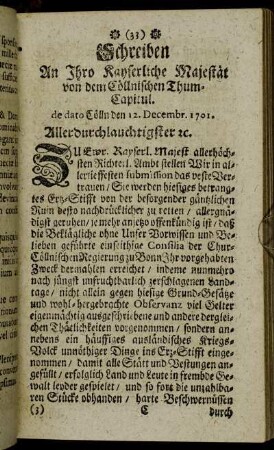 (33)
Schreiben
An Ihro Kayserliche Majestät
von dem Cöllnischen Thum-
Capitul.
de dato Cölln den 12. Decembr. 1701.
Allerdurchlauchtigster ꝛc.
ZU Ewr. Kayserl. Majest allerhöch-
sten Richterl. Ambt stellen Wir in al-
lertieffesten submission das veste Ver-
trauen / Sie werden hiesiges betrang-
tes Ertz-Stifft von der besorgender gäntzlichen
Ruin desto nachdrücklicher zu retten / allergnä-
digst geruhen / je mehr an etzo offenkündig ist / daß
die Beklägliche ohne Unser Vorwissen und Be-
lieben geführte einseithige Consilia der Chur-
Cöllnischen Regierung zu Bonn Ihr vorgehabten
Zweck dermahlen erreichet / indeme nunmehro
nach jüngst unfruchtbarlich zerschlagenen Land-
tage / nicht allein gegen hisige Grund-Gesätze
und wohl-hergebrachte Observanz viel Gelter
eigenmächtig ausgeschrieben und andere derglei-
chen Thätlichkeiten vorgenommen / sondern an-
nebens ein häuffiges ausländisches Kriegs-
Volck unnöthiger Dinge ins Ertz-Stifft einge-
nommen / damit alle Stätt und Vestungen an-
gefüllt / erfolglich Land und Leute in frembde Ge-
walt leyder gespielet / und so fort die unzahlba-
ren Stücke obhanden / harte Beschwernüssen
(3) C durch